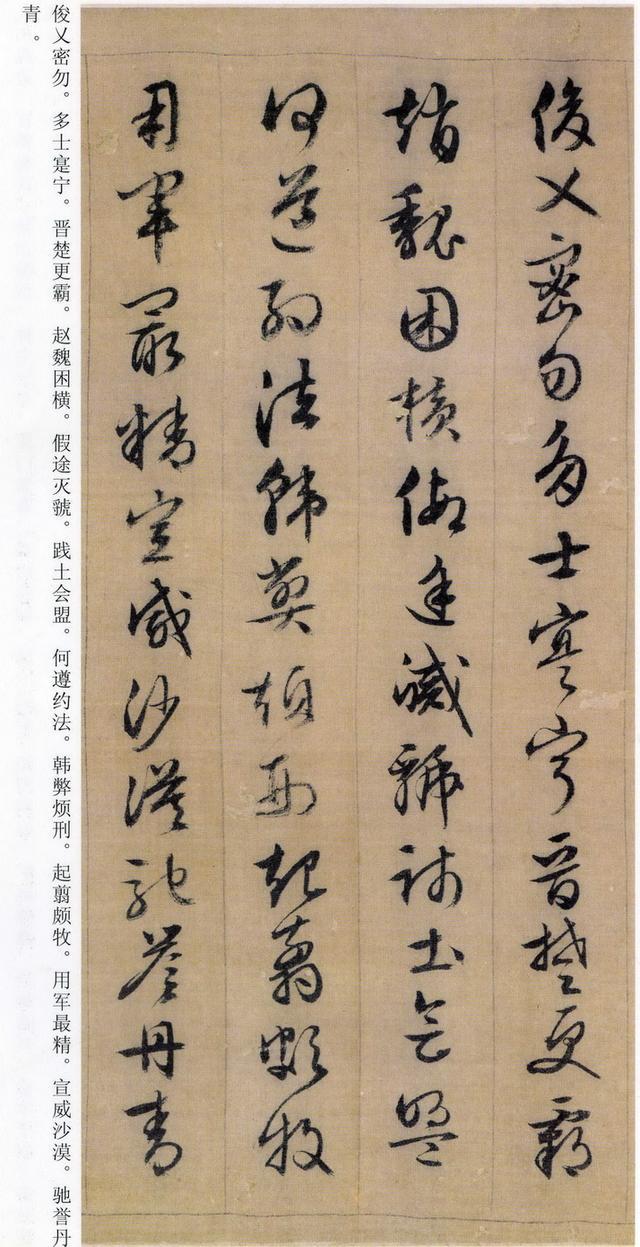 俊乂密勿多士寔寧晉楚更霸
趙魏困橫假途滅虢踐土會盟
何遵約法韓弊煩刑起翦頗牧
用軍最精宣威沙漠馳譽丹青
俊乂密勿。多士寔宁。晋楚更霸。赵魏困横。假途灭虢。践土会盟。何遵约法。韩弊烦刑。起翦颇牧。用军最精。宣威沙漠。驰誉丹
青。